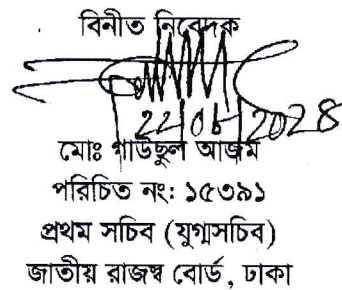 বিনীত নিবেদক
২২/০৮/২০২৪
মোঃ গাউছুল আজম
পরিচিত নং: ১৫৩৯১
প্রথম সচিব (যুগ্মসচিব)
জাতীয় রাজস্ব বোর্ড, ঢাকা